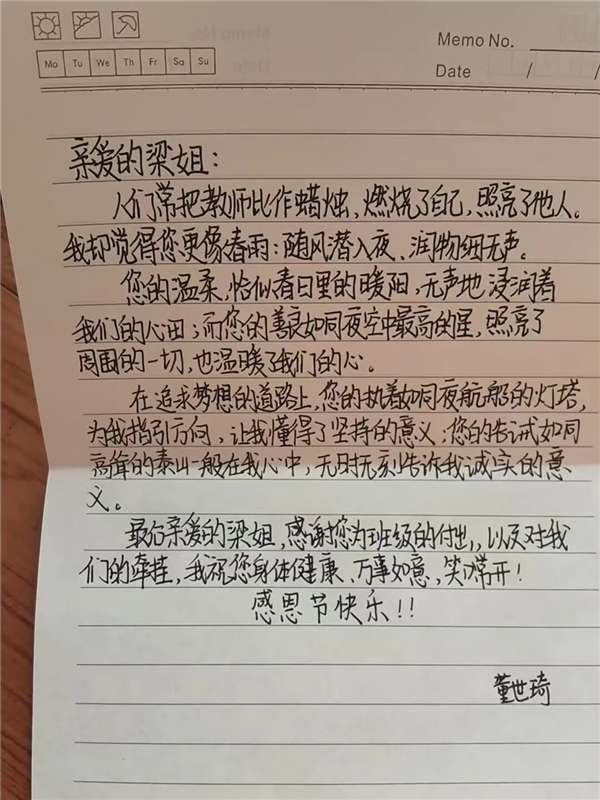 Memo No.
Mo Tu We Th Fr Sa Su
Date / /
亲爱的梁姐：
人们常把教师比作蜡烛，燃烧了自己，照亮了他人。
我却觉得您更像春雨：随风潜入夜、润物细无声。
您的温柔，恰似春日里的暖阳，无声地浸润着
我们的心田；而您的善良如同夜空中最高的星，照亮了
周围的一切，也温暖了我们的心。
在追求梦想的道路上，您的执着如同夜航船的灯塔，
为我指引方向，让我懂得了坚持的意义；您的告诫如同
高耸的泰山一般在我心中，无时无刻告诉我诚实的意
义。
最后亲爱的梁姐，感谢您为班级的付出，以及对我
们的牵挂，我祝您身体健康、万事如意，笑口常开！
感恩节快乐！！
董世琦